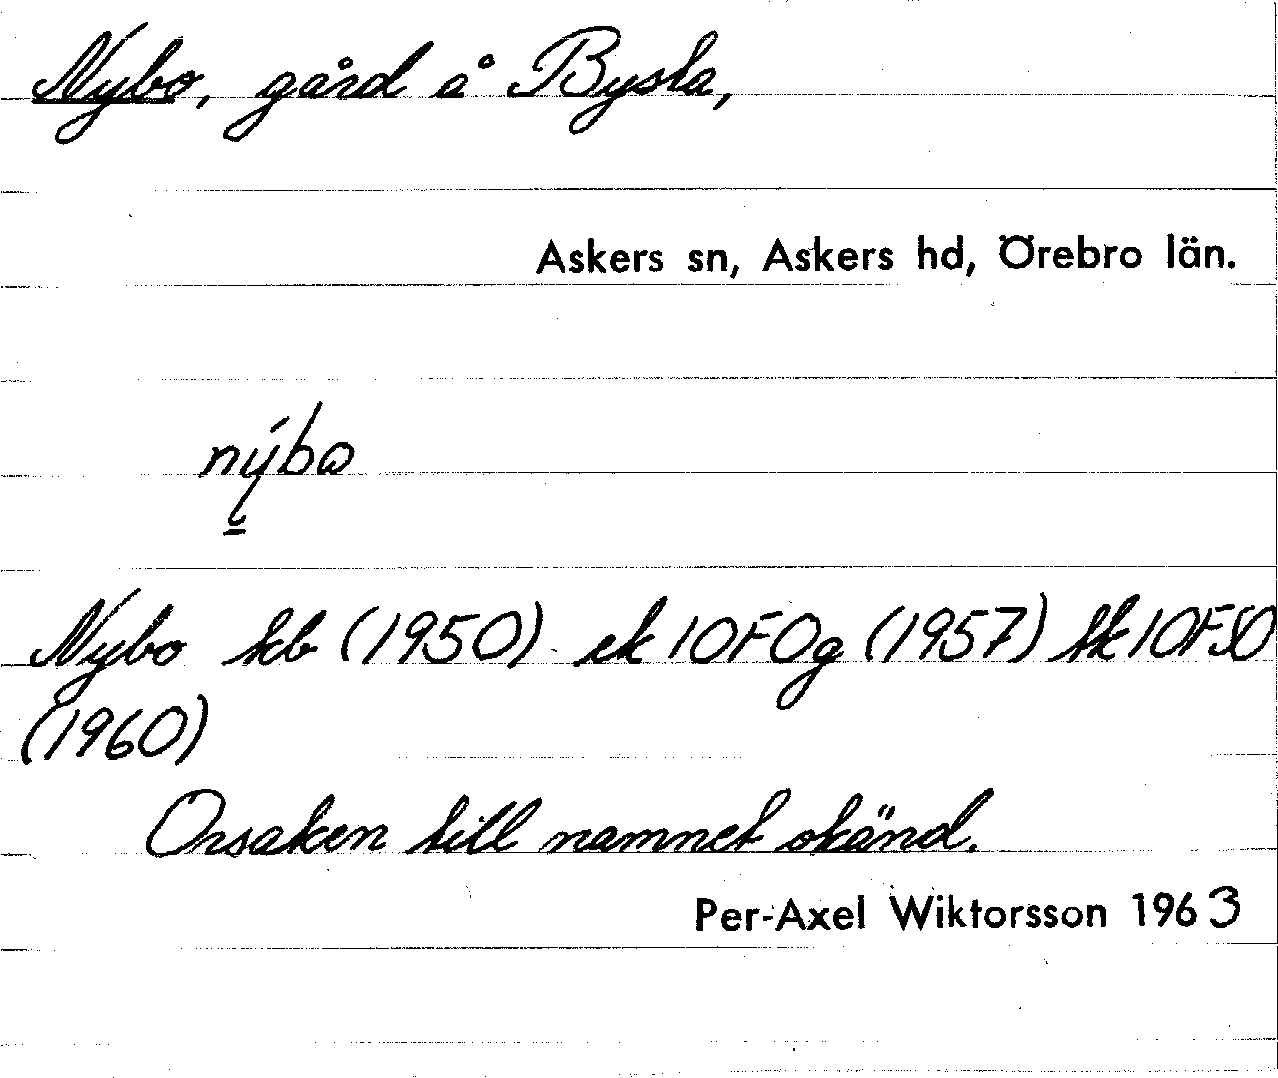 Nybo, gård å Bysta,
Askers sn, Askers hd, Örebro län.
nýbo
Nybo kb (1950) ek 10F0g (1957) tk 10FSO
(1960)
Orsaken till namnet okänd.
Per-Axel Wiktorsson 1963